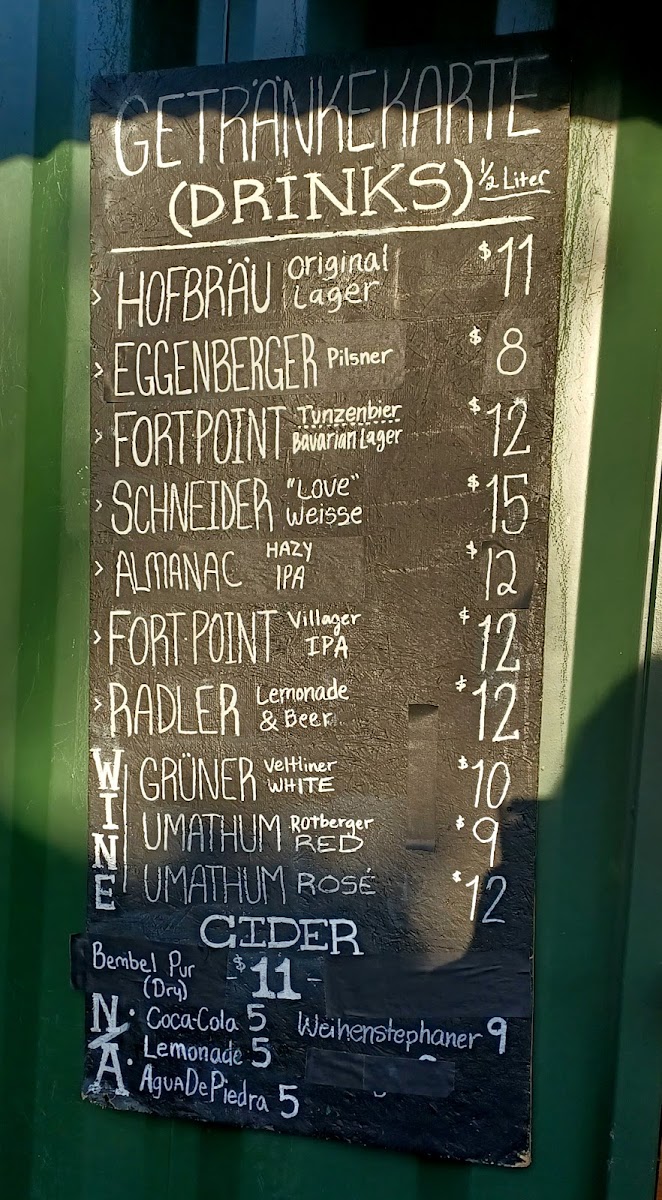 GETRÄNKEKARTE
(DRINKS) 1/2 Liter
> HOFBRÄU Original Lager $11
> EGGENBERGER Pilsner $8
> FORT POINT Tunzenbier Bavarian Lager $12
> SCHNEIDER "LOVE" Weisse $15
> ALMANAC HAZY IPA $12
> FORT·POINT Villager IPA $12
> RADLER Lemonade & Beer $12
WINE
GRÜNER Veltliner WHITE $10
UMATHUM Rotberger RED $9
UMATHUM ROSÉ $12
CIDER
Bembel Pur (Dry) $11-
N/A
· Coca-Cola 5 Weihenstephaner 9
· Lemonade 5
· AguaDePiedra 5